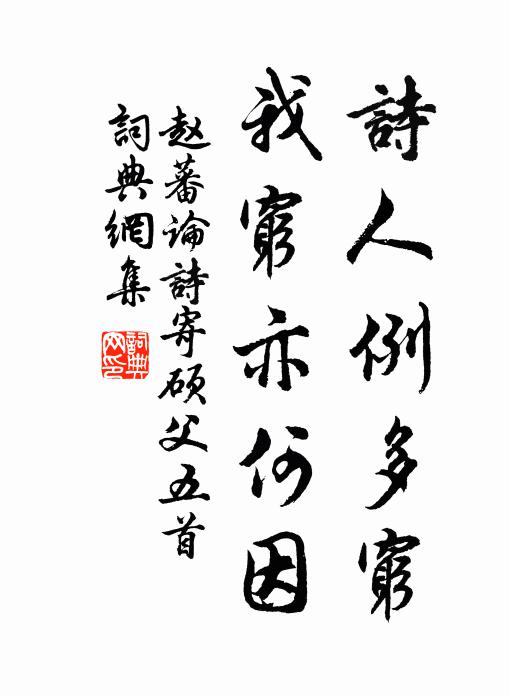 詩人例多窮
我窮亦何因
赵蕃論詩寄硕父五首
詞典網集
詞典網印